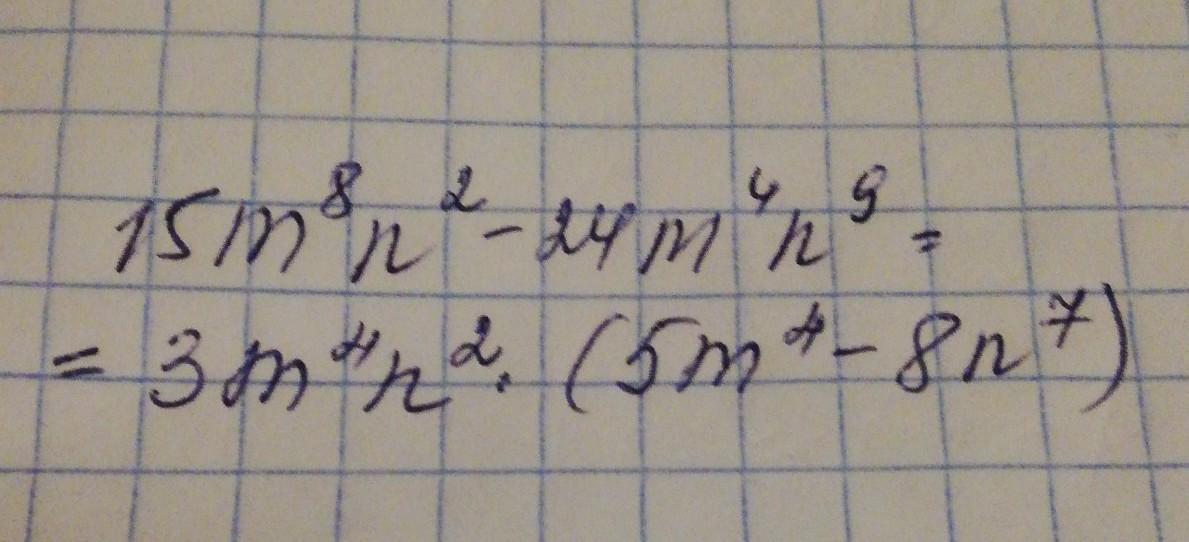 15m⁸n² - 24m⁴n⁹ =
= 3m⁴n² · (5m⁴ - 8n⁷)